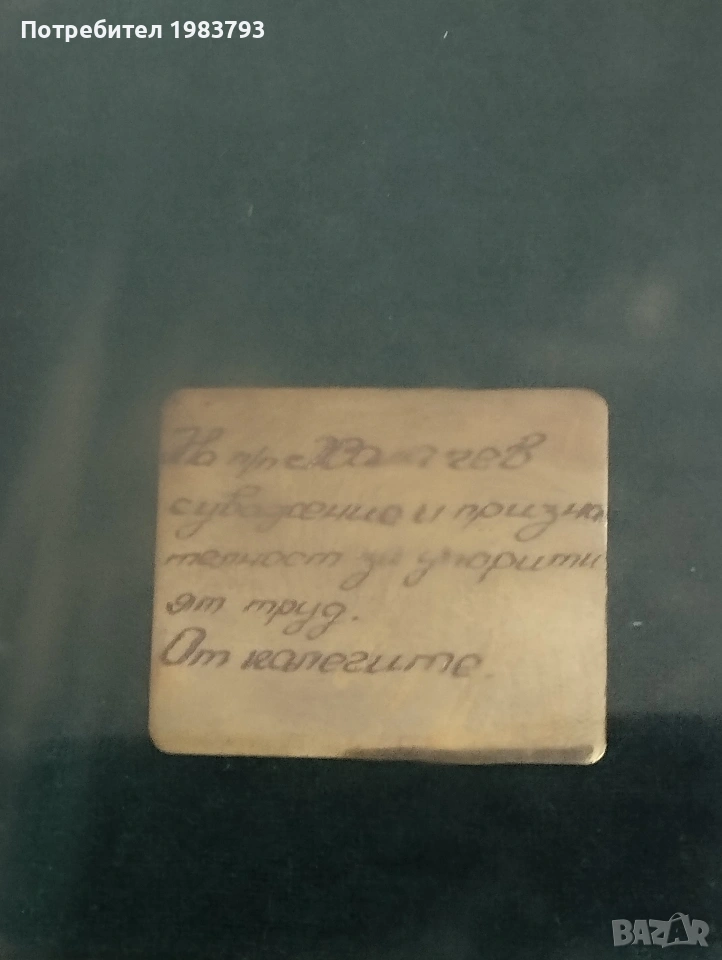 Потребител 1983793
На
с уважение и призна
телност за упорити
ят труд.
От колегите.
BAZAR